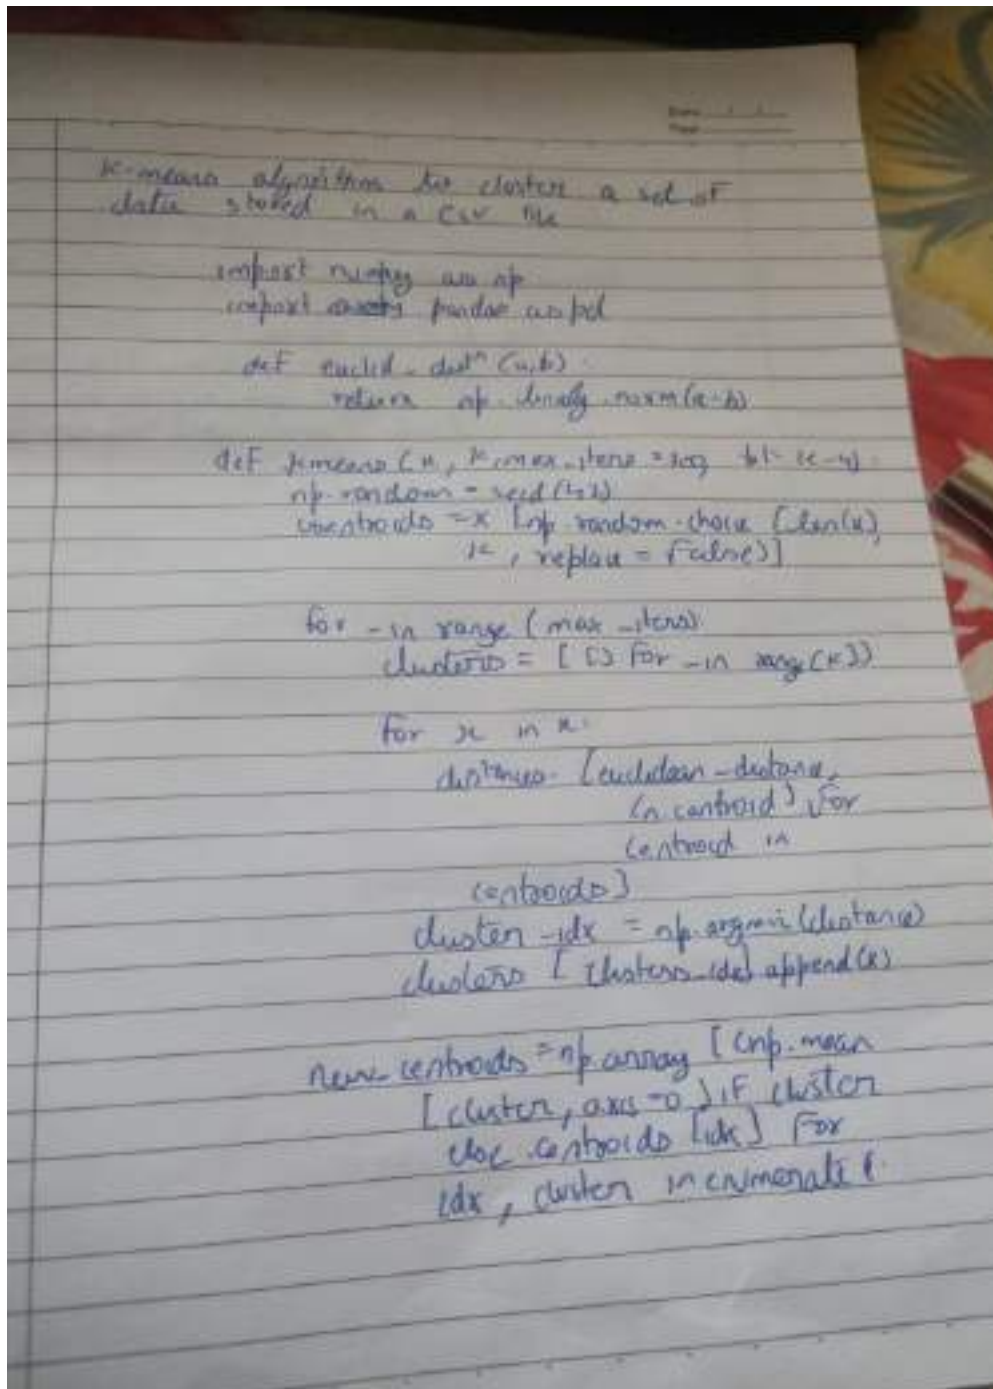 Date
Page
K-means algorithm to cluster a set of
data stored in a CSV file
import numpy as np
import pandas as pd
def euclid_distn (a,b)
return np. linalg. norm(a-b)
def kmeans (x, K, max_iters = 100,
np. random - seed (42)
centroids = x [np. random. choice [len(x),
K, replace = False)]
for - in range ( max _iters)
clusters = [ [] for _in range(K))
for x in x.
distances [euclidean - distance,
(x, centroid) for
centroid in
centroids]
cluster _idx = np. argmin (distance)
clusters [ clusters_idx] append(x)
new_centroids = np. array [ (np. mean
[ cluster, axis = 0 ) if cluster
else centroids [idx] for
idx, cluster in enumerate (